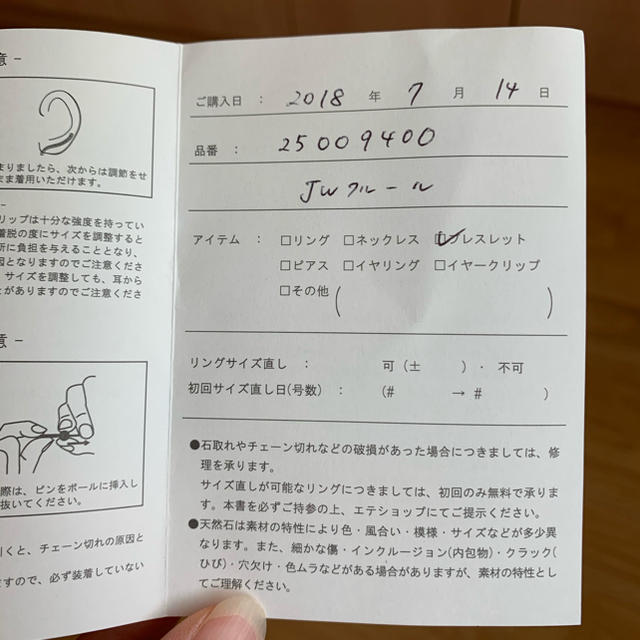 意 -
まりましたら、次からは調節をせ
まま着用いただけます。
リップは十分な強度を持ってい
着脱の度にサイズを調整すると
所に負担を与えることとなり、
因となりますのでご注意くださ
サイズを調整しても、耳から
とがありますのでご注意くださ
意 -
際は、ピンをボールに挿入し
抜いてください。
引くと、チェーン切れの原因と
ますので、必ず装着していない
ご購入日 : 2018 年 7 月 14 日
品番 : 25009400
JWフルール
アイテム : □リング □ネックレス ☑ブレスレット
□ピアス □イヤリング □イヤークリップ
□その他 ( )
リングサイズ直し : 可 (± )・ 不可
初回サイズ直し日(号数) : (# → # )
●石取れやチェーン切れなどの破損があった場合につきましては、修
理を承ります。
サイズ直しが可能なリングにつきましては、初回のみ無料で承りま
す。本書を必ずご持参の上、エテショップにてご提示ください。
●天然石は素材の特性により色・風合い・模様・サイズなどが多少異
なります。また、細かな傷・インクルージョン(内包物)・クラック(
ひび)・穴欠け・色ムラなどがある場合がありますが、素材の特性とし
てご理解ください。